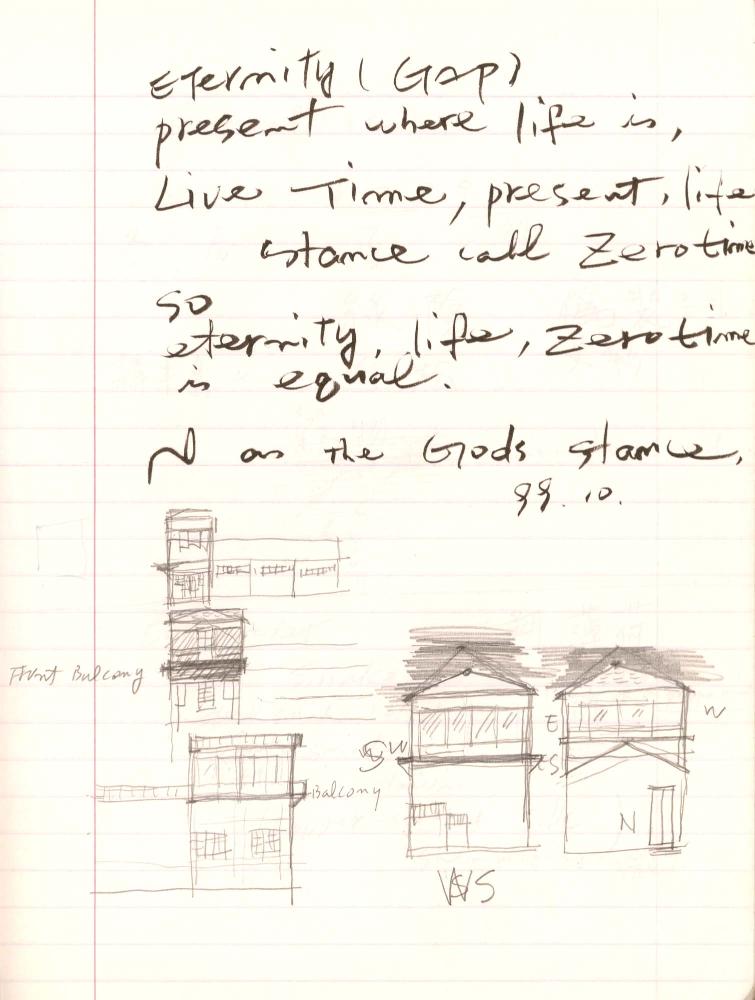 Eternity (Gap)
present where life is,
Live Time, present, life
stance call Zerotime
so
eternity, life, Zerotime
is equal.
N as the Gods stance.
99. 10.
Front Balcony
Balcony
W
E
S
W
N
S